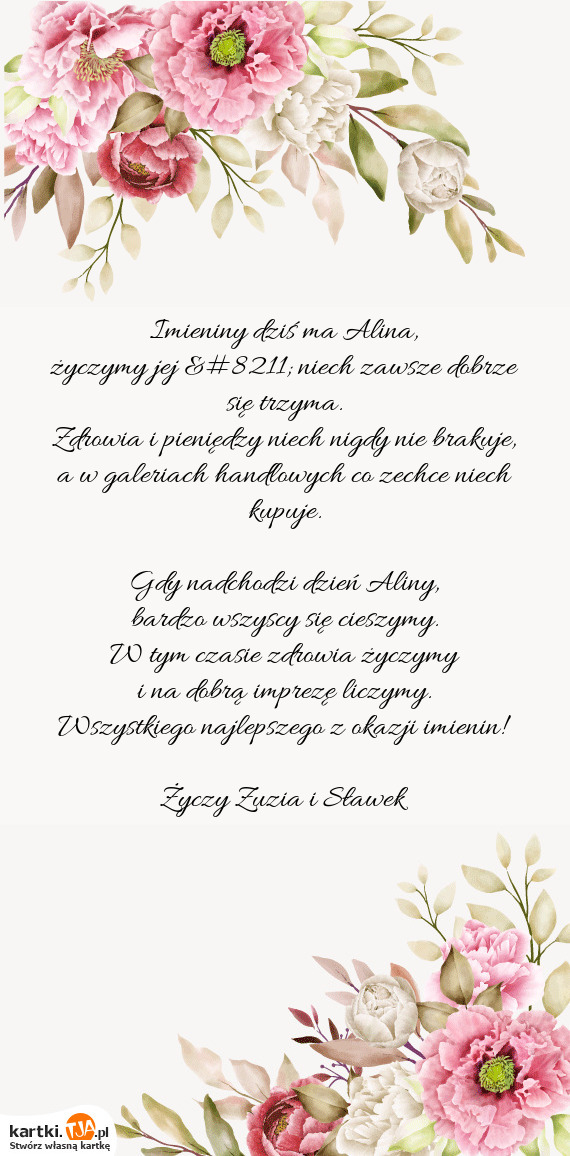 Imieniny dziś ma Alina,
życzymy jej &#8211; niech zawsze dobrze
się trzyma.
Zdrowia i pieniędzy niech nigdy nie brakuje,
a w galeriach handlowych co zechce niech
kupuje.
Gdy nadchodzi dzień Aliny,
bardzo wszyscy się cieszymy.
W tym czasie zdrowia życzymy
i na dobrą imprezę liczymy.
Wszystkiego najlepszego z okazji imienin!
Życzy Zuzia i Sławek
kartki.TJA.pl
Stwórz własną kartkę